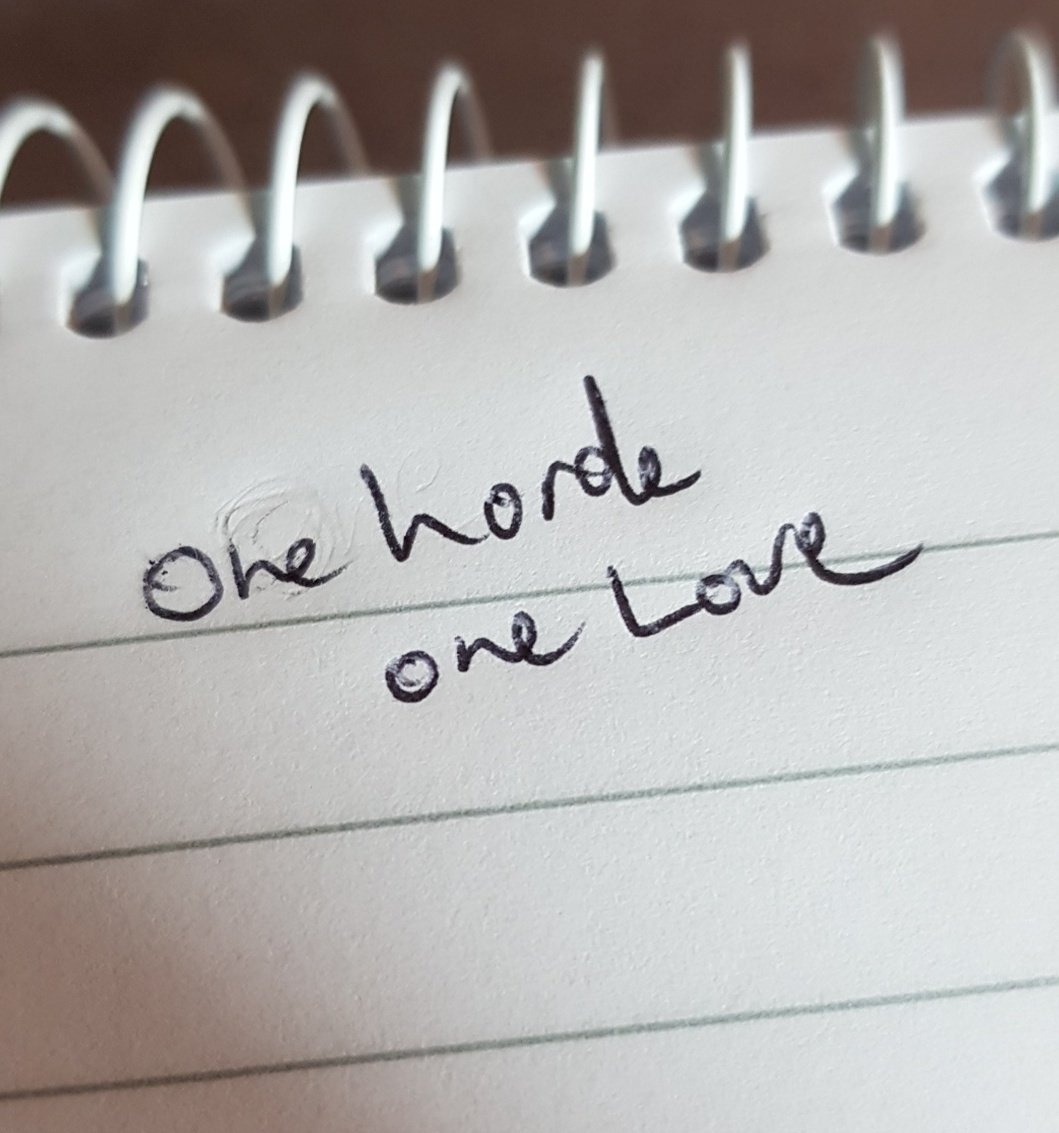 One horde
one Love